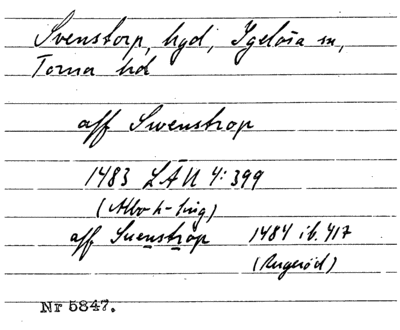 Svenstorp, hgd, Igelösa sn,
Torna hd
aff Swenstrop
1483 LÄU 4:399
(Albo h-ting)
aff Suenstrop 1484 ib. 417
(Rugeröd)
Nr 5847.